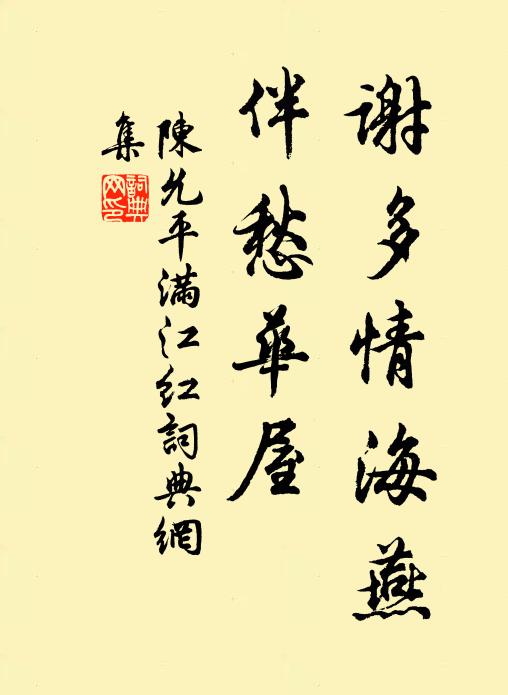 謝多情海燕
伴愁華屋
陳允平滿江紅詞典網
集
詞典
网印